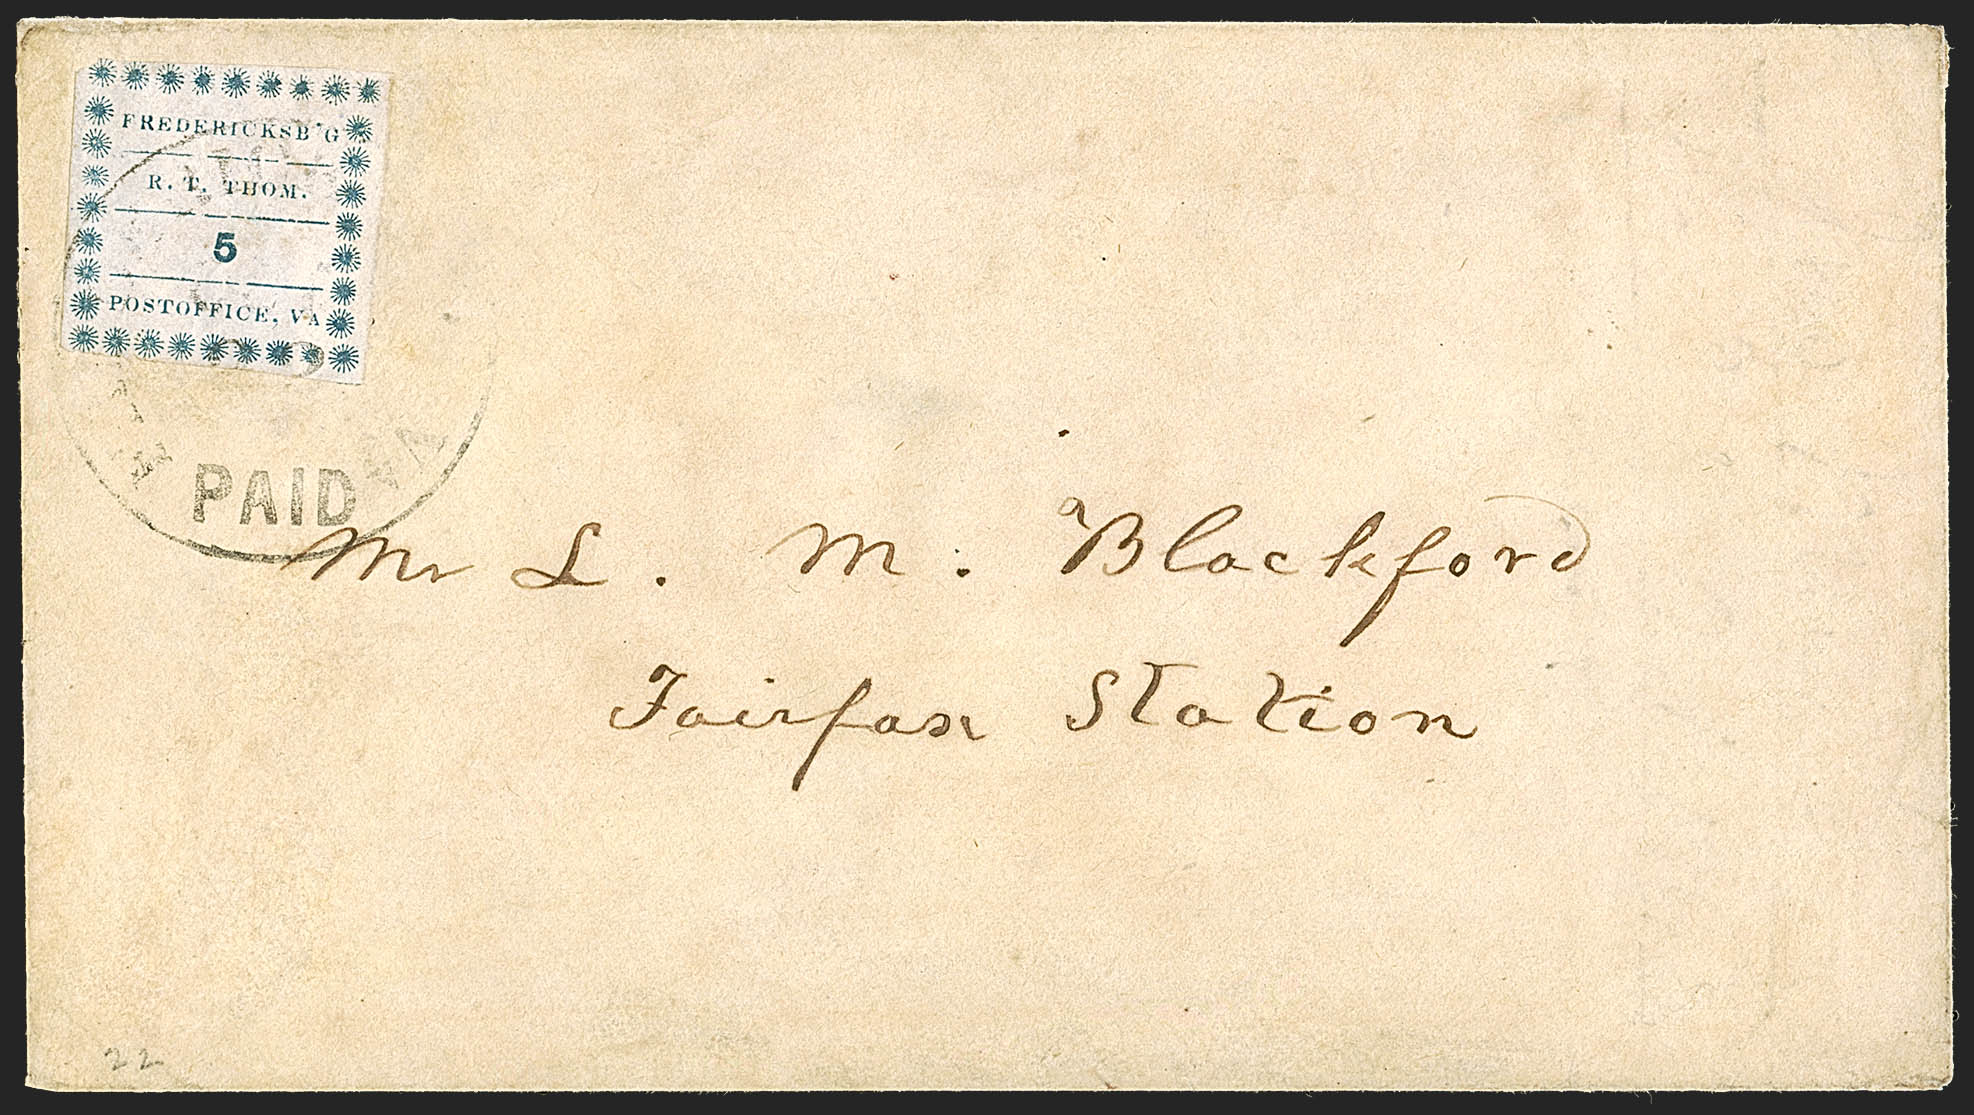 FREDERICKSB'G
R. T. THOM.
5
POSTOFFICE, VA
PAID
Mr L. M. Blackford
Fairfax Station
22